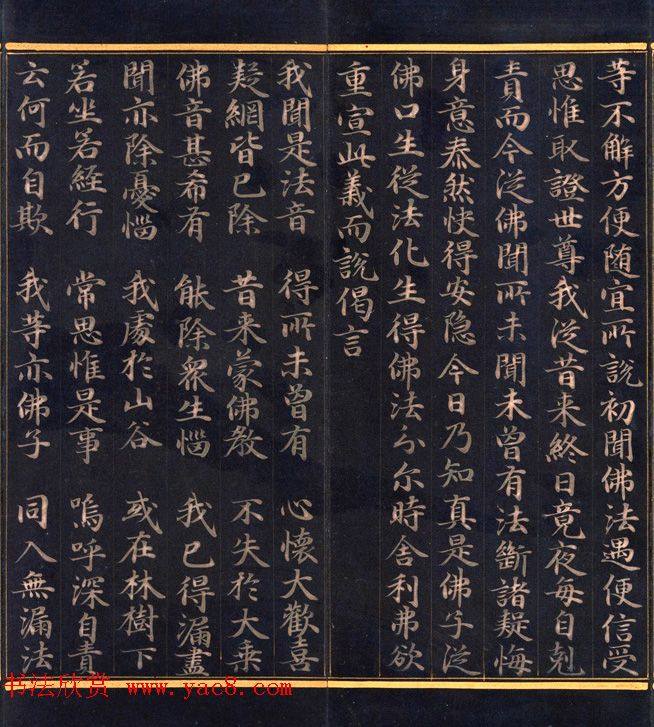 等不解方便随宜所說初聞佛法遇便信受
思惟取證世尊我從昔来終日竟夜每自剋
責而今從佛聞所未聞未曾有法斷諸疑悔
身意泰然快得安隐今日乃知真是佛子從
佛口生從法化生得佛法分尔時舍利弗欲
重宣此義而說偈言
我聞是法音 得所未曾有 心懷大歡喜
疑網皆已除 昔来蒙佛教 不失於大乗
佛音甚希有 能除衆生惱 我已得漏盡
聞亦除憂惱 我處於山谷 或在林樹下
若坐若經行 常思惟是事 嗚呼深自責
云何而自欺 我等亦佛子 同入無漏法
书法欣赏 www.yac8.com